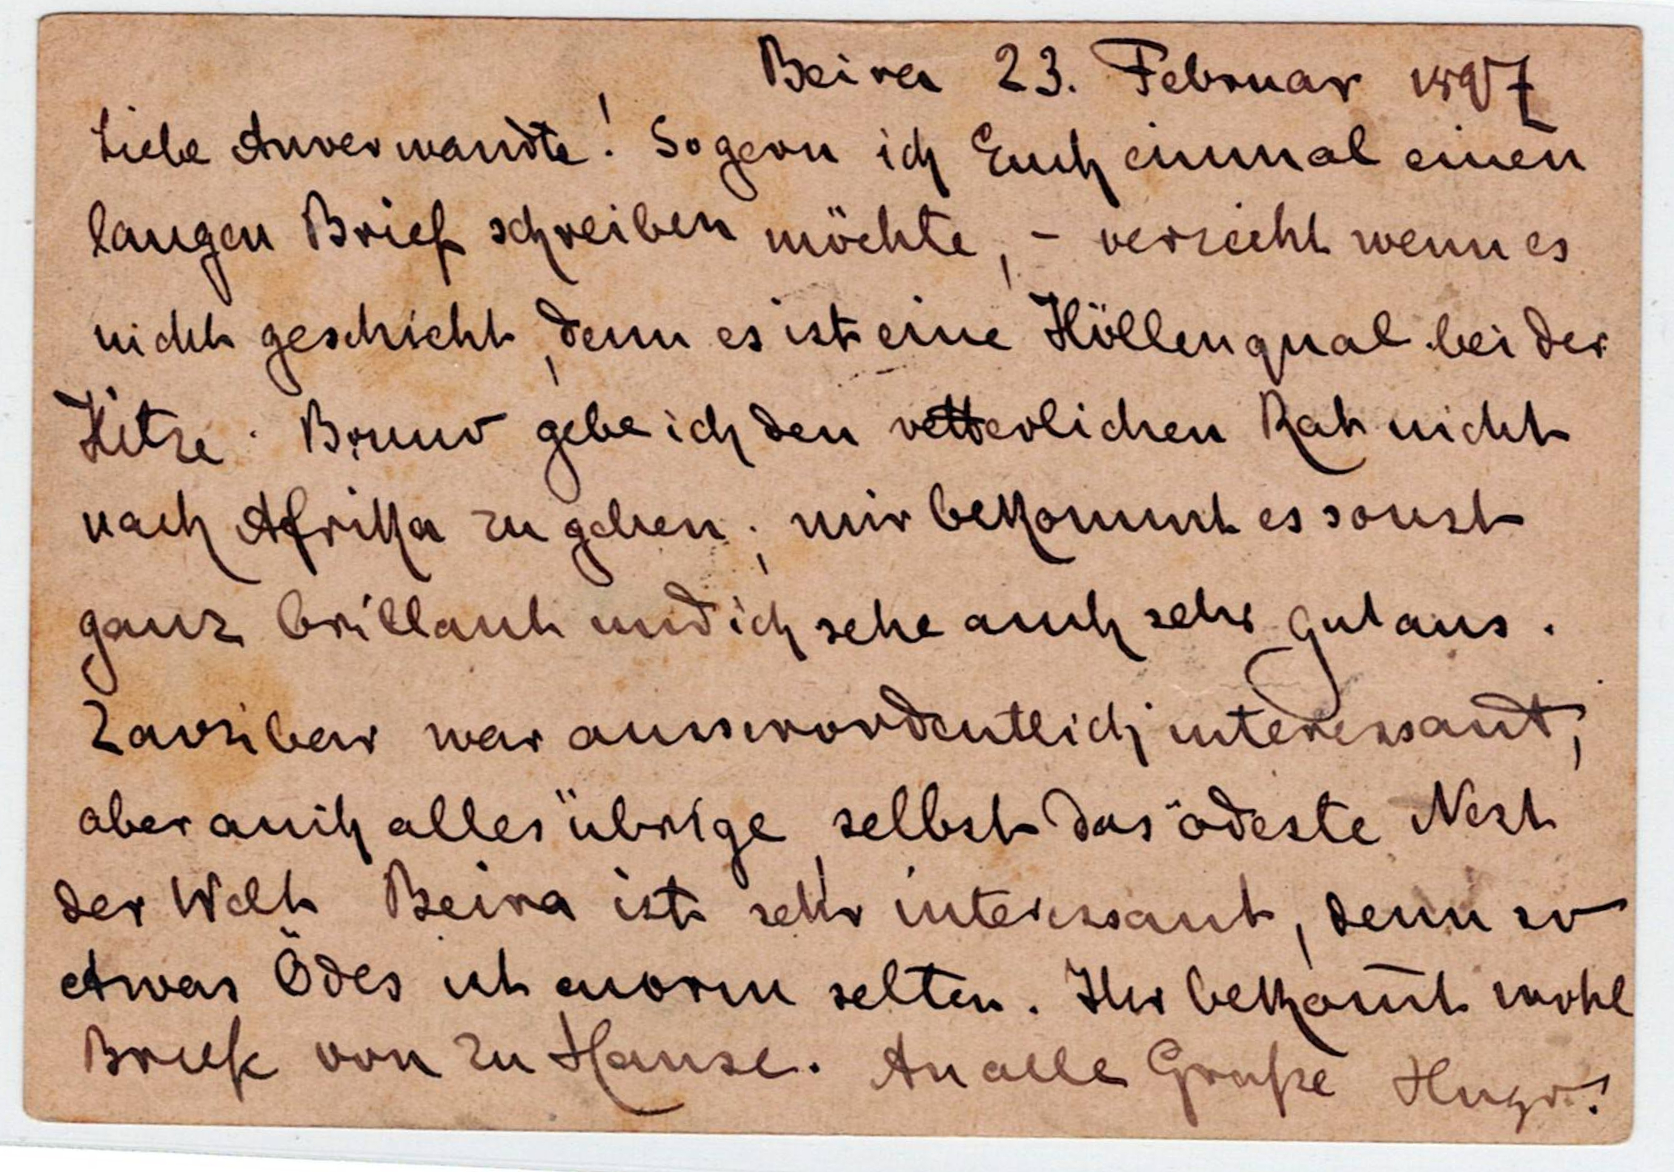 Beira 23. Februar 1897
Liebe Anverwandte! So gern ich Euch einmal einen
langen Brief schreiben möchte, – verzeiht wenn es
nicht geschieht, denn es ist eine Höllenqual bei der
Hitze. Bruno gebe ich den vetterlichen Rat nicht
nach Afrika zu gehen; mir bekommt es sonst
ganz brillant und ich sehe auch sehr gut aus.
Zanzibar war ausserordentlich interessant,
aber auch alles übrige, selbst das ödeste Nest
der Welt Beira ist sehr interessant, denn so
etwas Ödes ist enorm selten. Ihr bekom̅t wohl
Briefe von zu Hause. An alle Grüße Hugo!